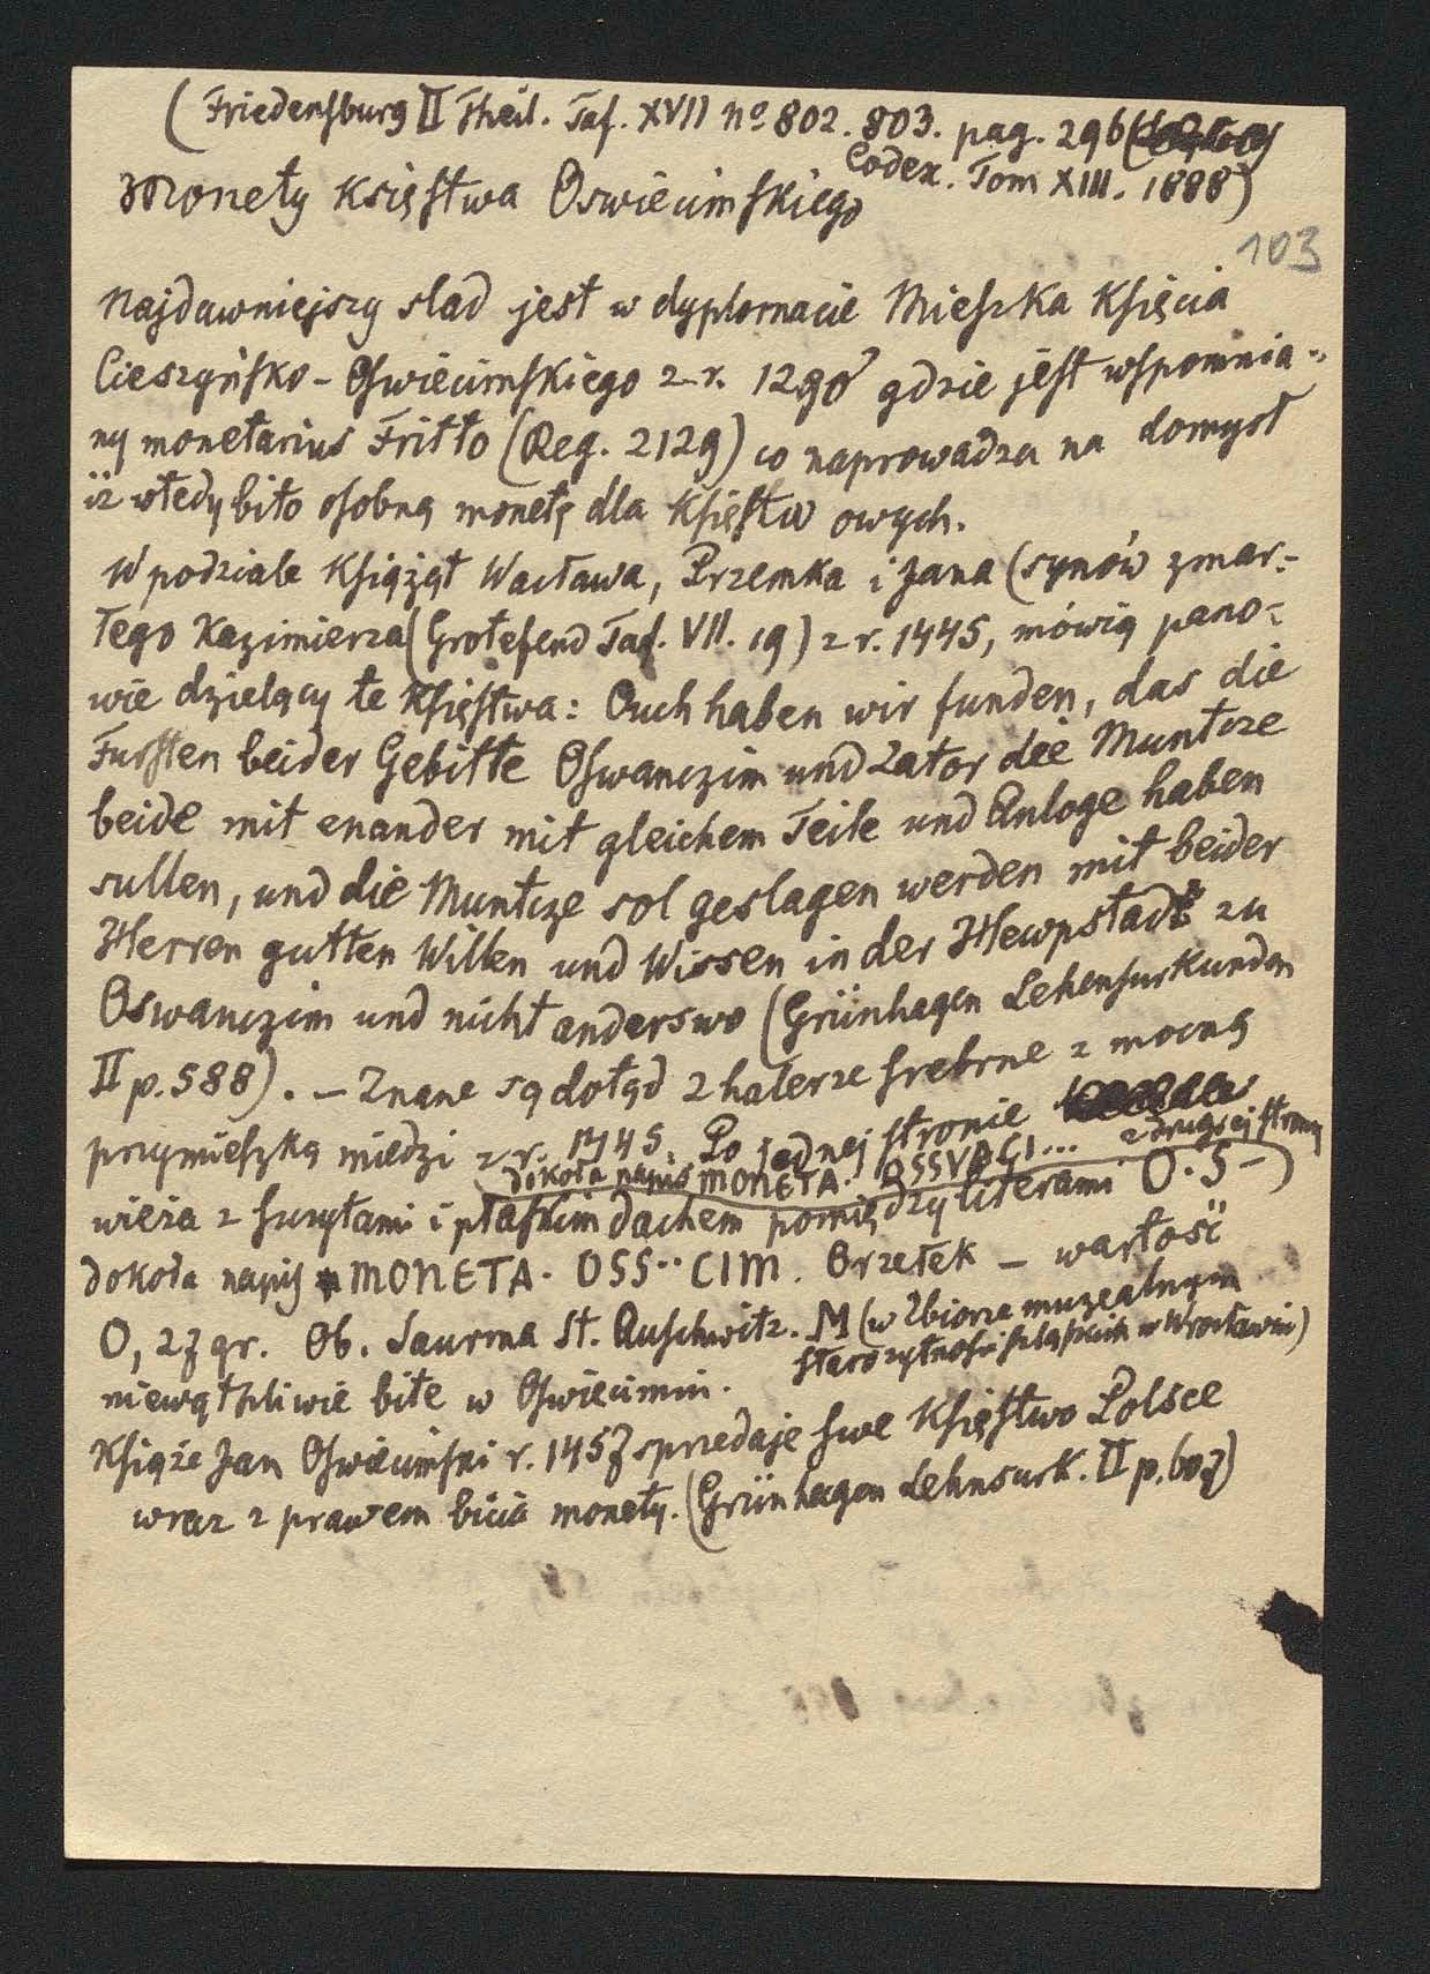 (Friedensburg II Theil. Taf. XVII No 802. 803. pag. 296
Codex. Tom XIII. 1888)
Monety Księstwa Oswiecimskiego
103
Najdawniejszy slad jest w dyplomacie Mieszka Księcia
Cieszyńsko - Oswiecimskiego z r. 1290 gdzie jest wspomnia-
ny monetarius Fritto (Reg. 2129) co naprowadza na domysł
iż wtedy bito osobną monetę dla Księstw owych.
W podziale Książąt Wacława, Przemka i Jana (synów zmar-
łego Kazimierza (Grotefend Taf. VII. 19) z r. 1445, mówią pano-
wie dzielący te Księstwa: Ouch haben wir funden, das die
Fursten beider Gebitte Oswanczim und Zator die Muntcze
beide mit enander mit gleichem Teile und Anloge haben
sullen, und die Muntcze sol geslagen werden mit beider
Herren gutten Willen und Wissen in der Hewpstadt zu
Oswanczim und nicht anderswo (Grünhagen Lehensurkunden
II p. 588). - Znane są dotąd 2 halerze srebrne z mocną
przymieszką miedzi z r. 1445. Po jednej stronie
dokoła napis MONETA. OSSVACI... z drugiej strony
wieża z szczytami i płaskim dachem pomiędzy literami O. S -)
dokoła napis MONETA. OSS.. CIM. Orzełek - wartość
0,27 gr. Ob. Saurma St. Auschwitz. M (w Zbiorze muzealnym
starożytności szląskich w Wrocławiu)
niewątpliwie bite w Oswiecimiu.
Książe Jan Oswiecimski r. 1457 sprzedaje swe Księstwo Polsce
wraz z prawem bicia monety. (Grünhagen Lehnsurk. II p. 607)